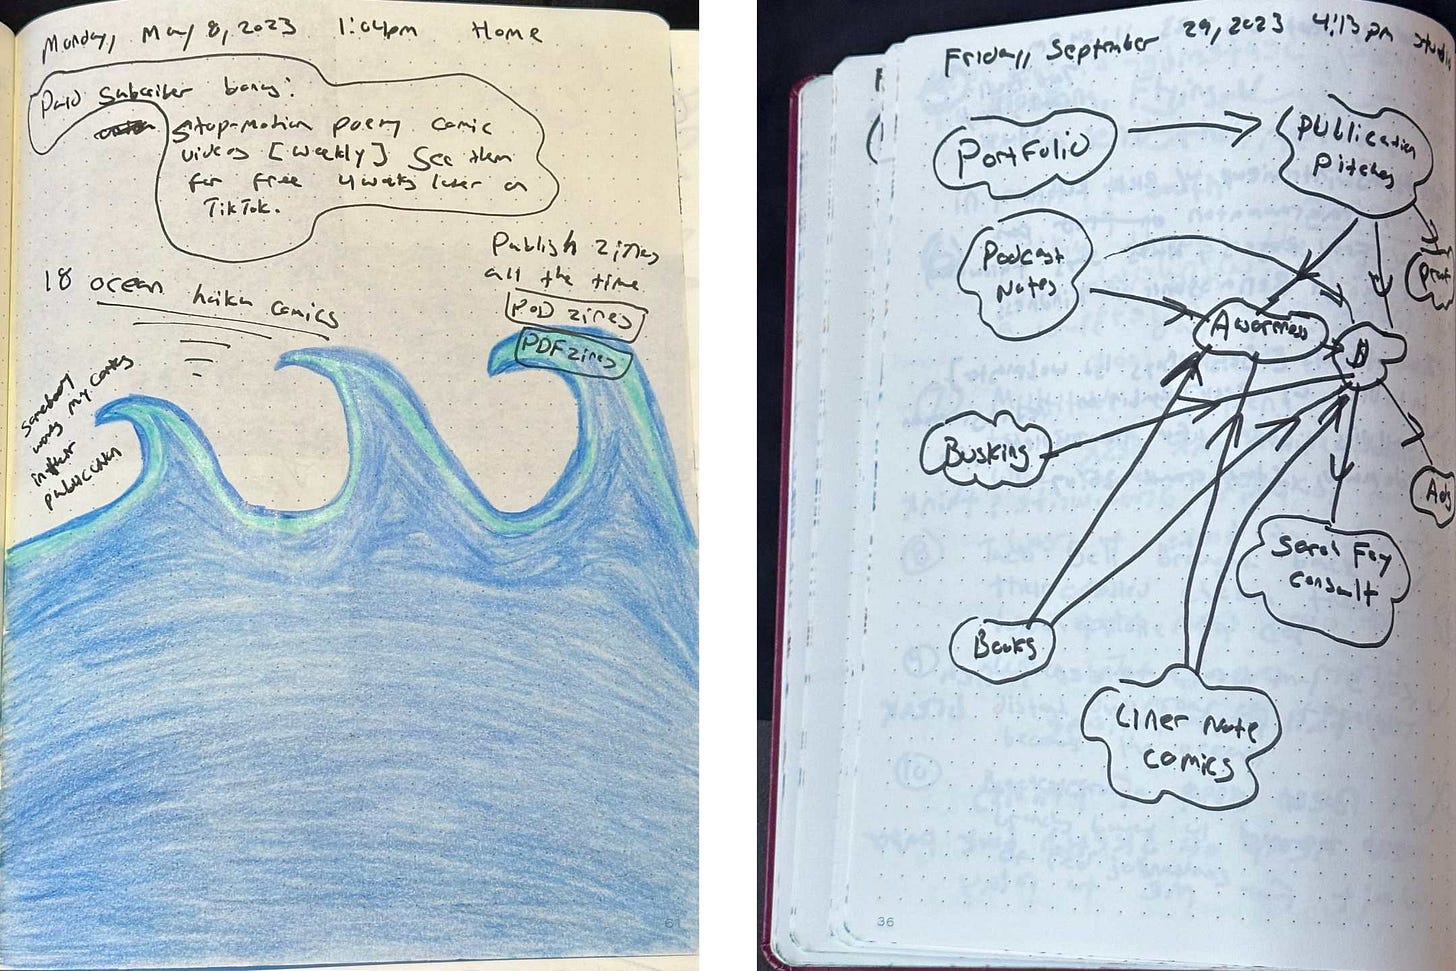 Monday, May 8, 2023 1:04pm Home
Paid subscriber bonus:
stop-motion poetry comic
videos [weekly] See them
for free 4 weeks later on
TikTok.
Publish zines
all the time
POD zines
PDF zines
18 ocean haiku comics
somebody
wants my comics
in their
publication
6
Friday, September 29, 2023 4:13pm studio
Portfolio
Publication
Pitches
Podcast
Notes
Awareness
$
Busking
Ads
Sarah Fay
consult
Books
Liner Note
comics
36